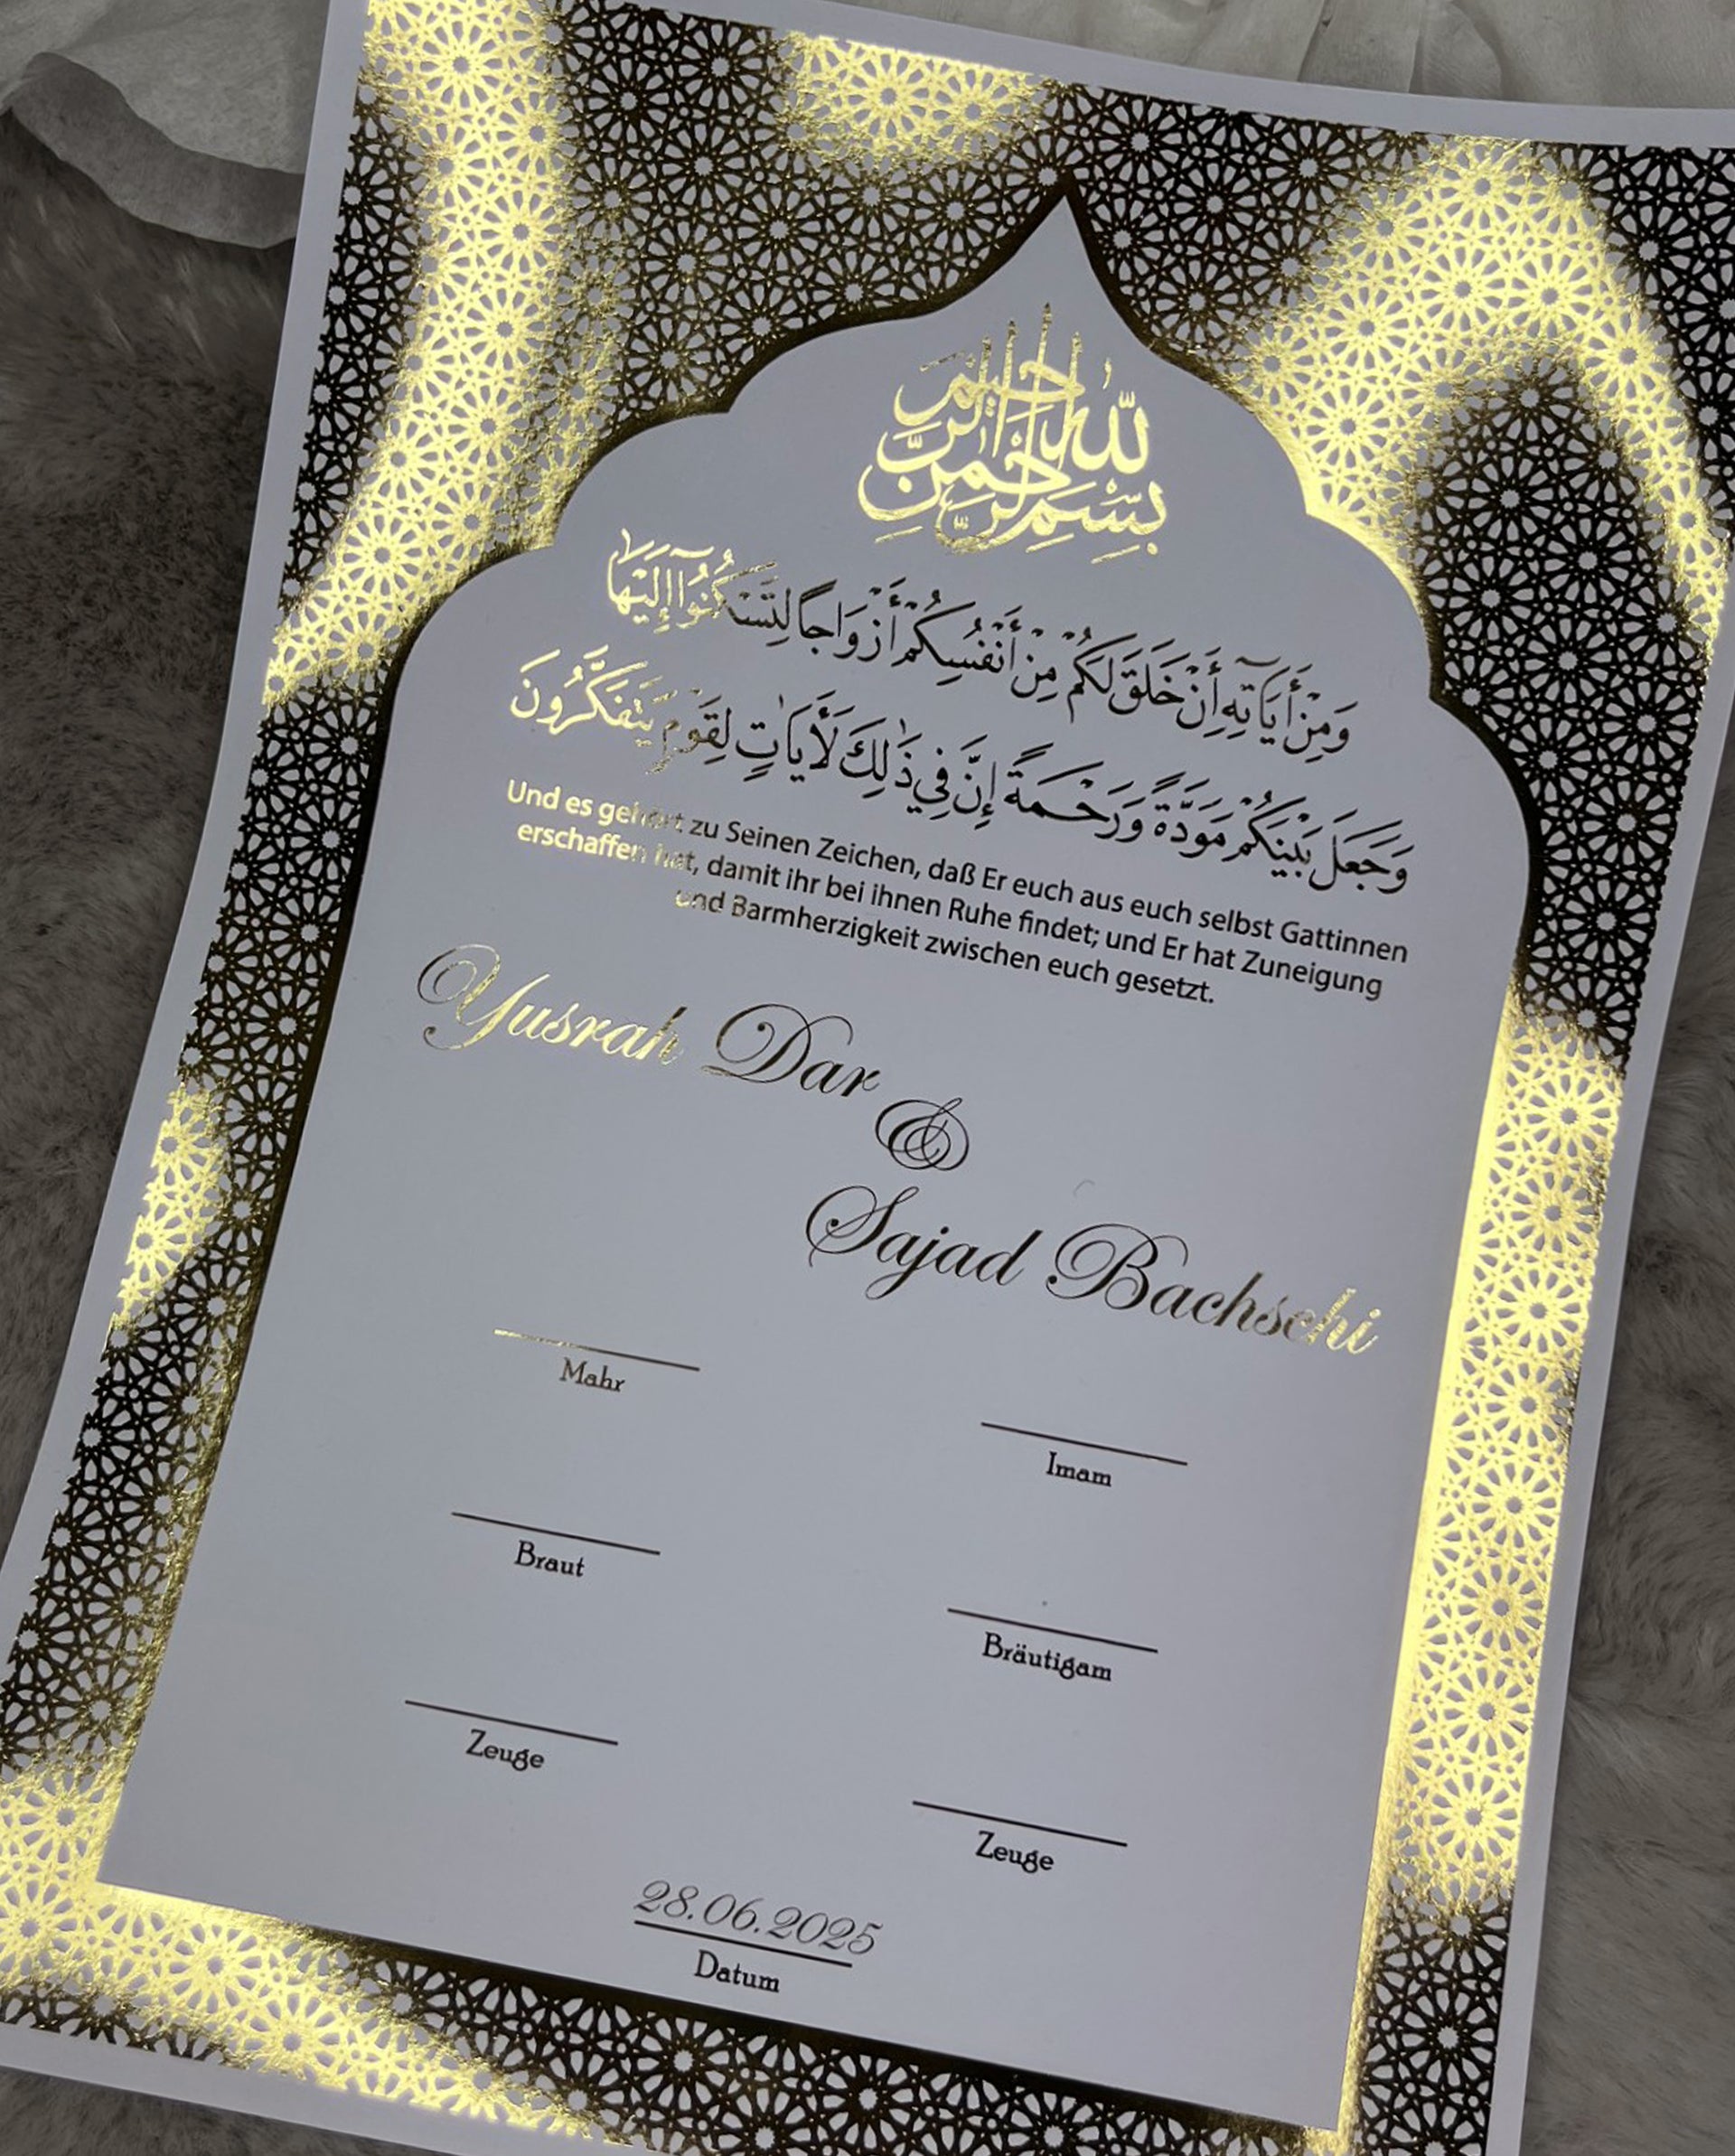 بِسْمِ اللهِ الرَّحْمٰنِ الرَّحِيْمِ
وَمِنْ أَيَاتِهِ أَنْ خَلَقَ لَكُمْ مِنْ أَنْفُسِكُمْ أَزْوَاجاً لِتَسْكُنُوا إِلَيْهَا
وَجَعَلَ بَيْنَكُمْ مَوَدَّةً وَرَحْمَةً إِنَّ فِي ذَٰلِكَ لَأَيَاتٍ لِقَوْمٍ يَتَفَكَّرُونَ
Und es gehört zu Seinen Zeichen, daß Er euch aus euch selbst Gattinnen
erschaffen hat, damit ihr bei ihnen Ruhe findet; und Er hat Zuneigung
und Barmherzigkeit zwischen euch gesetzt.
Yusrah Dar
&
Sajad Bachschi
Mahr
Imam
Braut
Bräutigam
Zeuge
Zeuge
28.06.2025
Datum